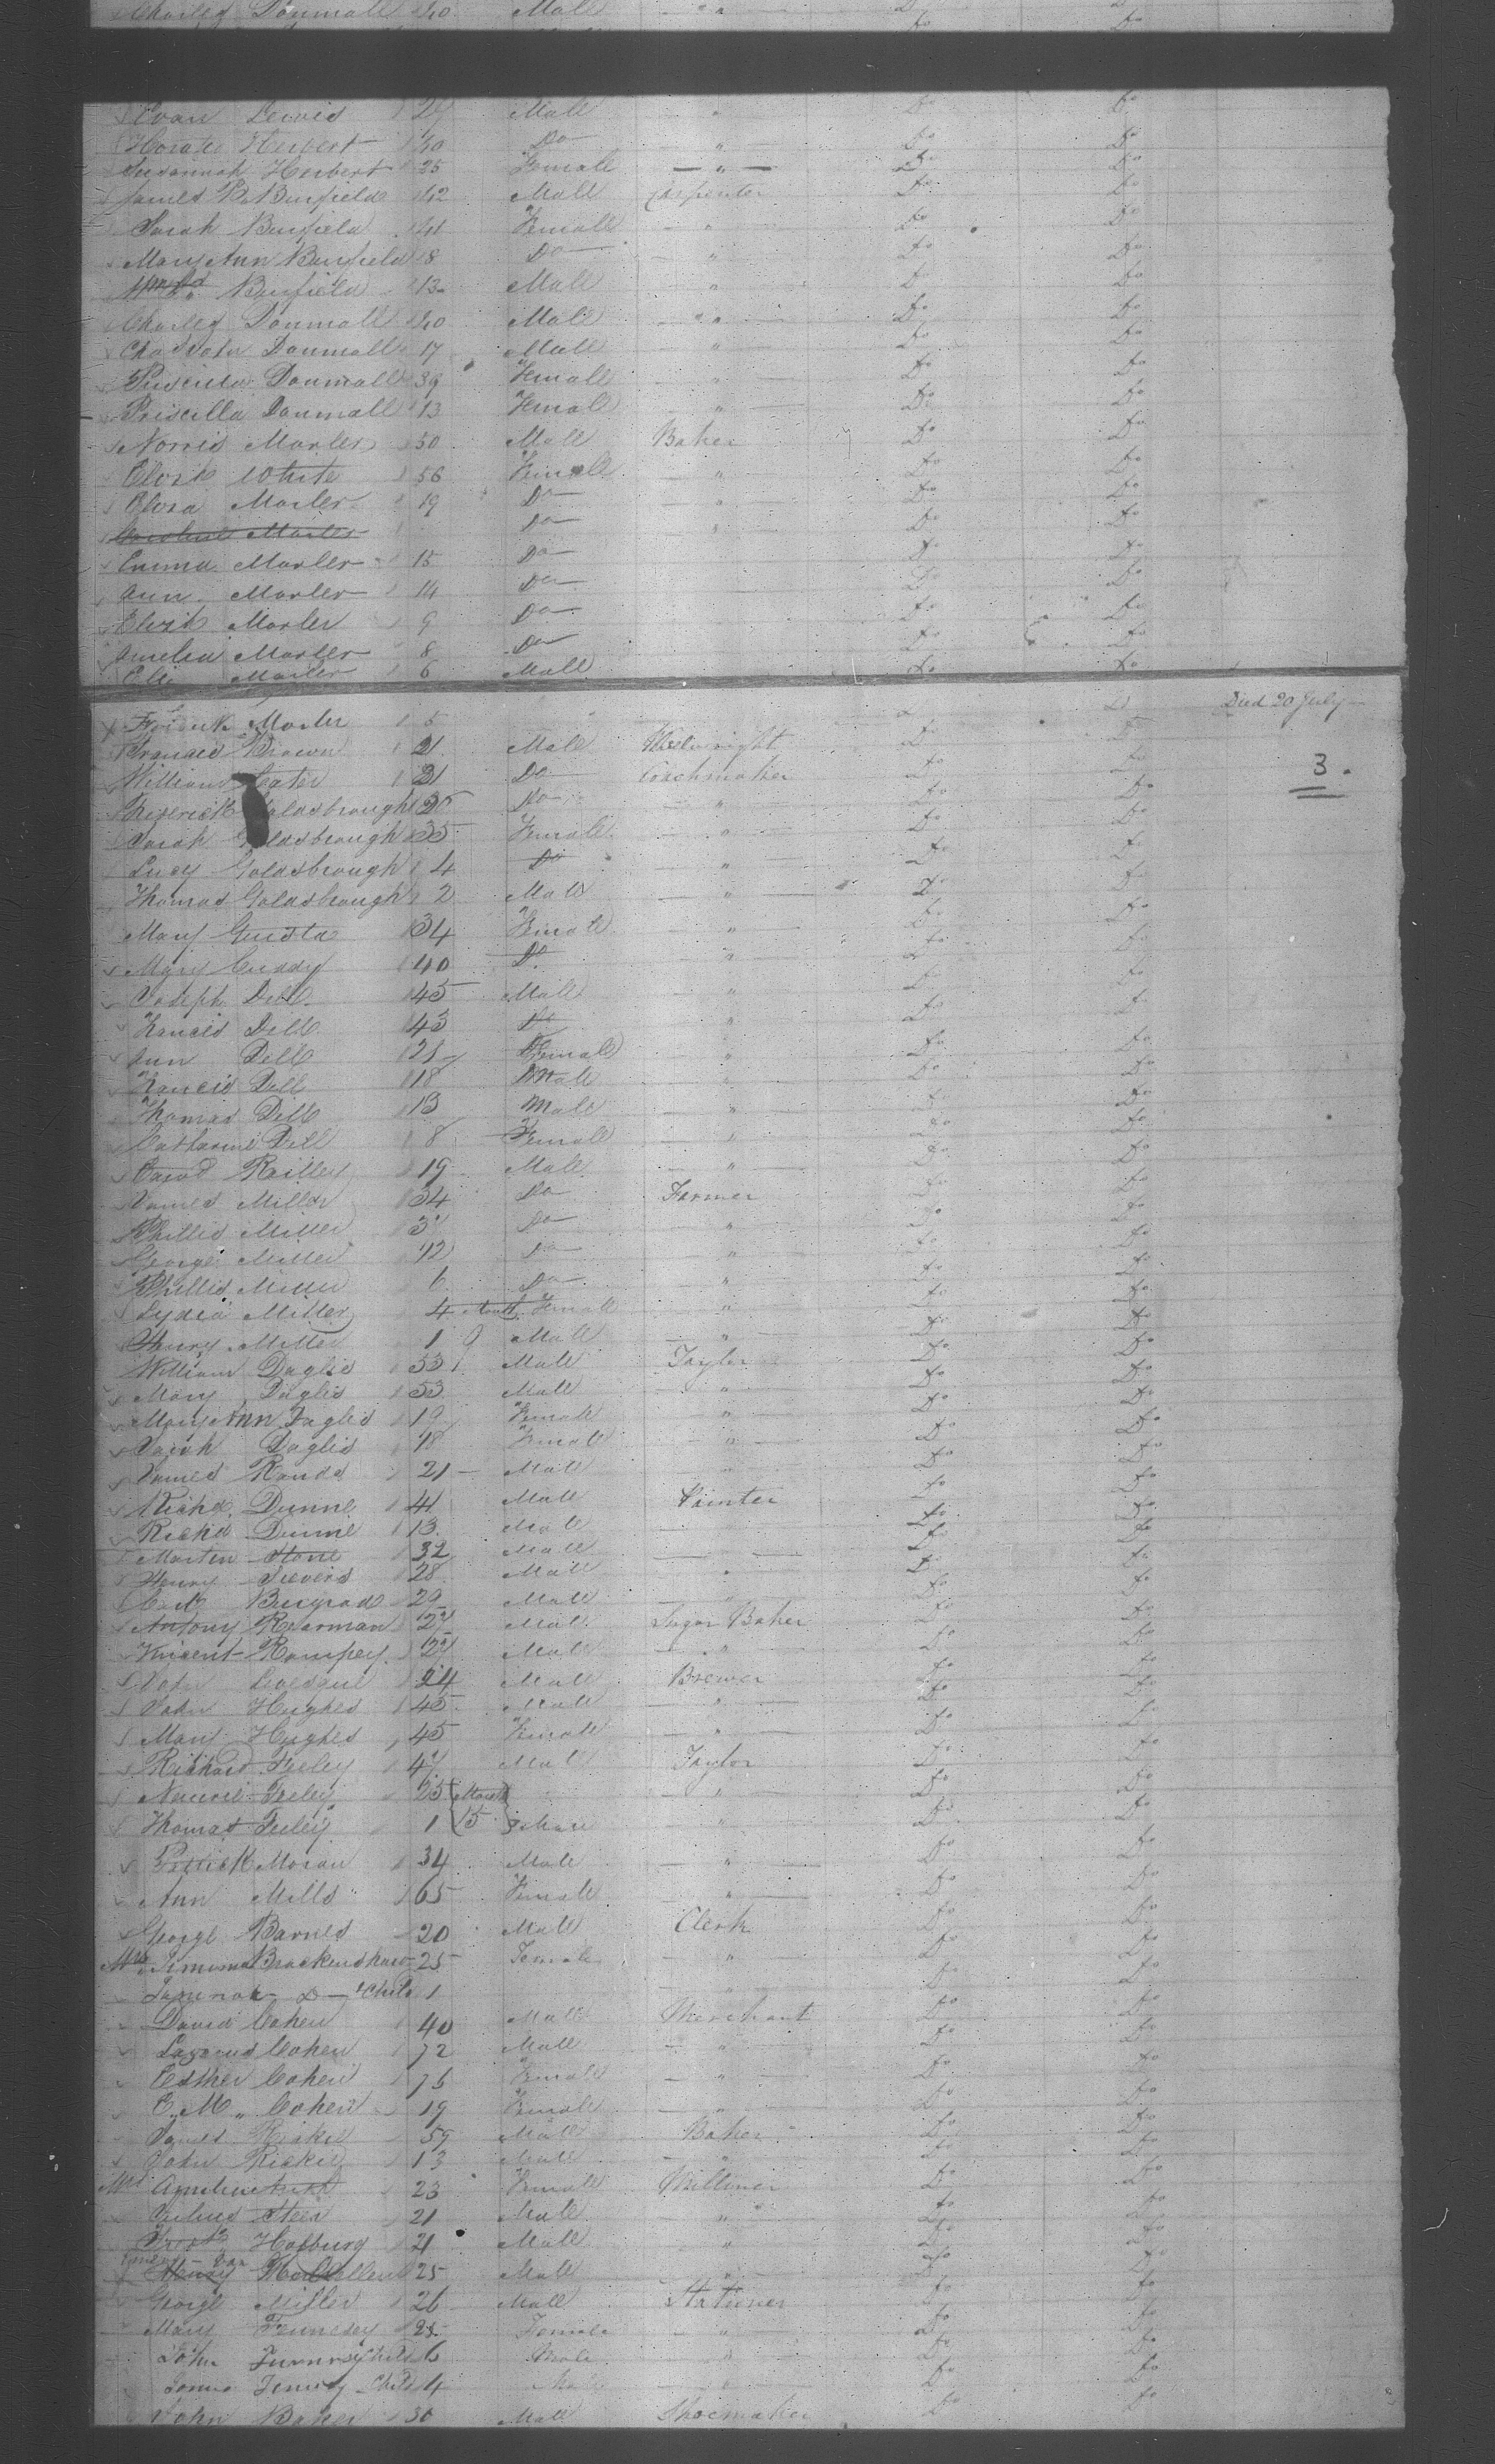 Charles Donmall 40 Male " Do Do
Evan Lewis 27 Male " Do Do
Horatio Herbert 40 Do " Do Do
Susannah Herbert 25 Female " Do Do
James B. Banfield 42 Male Carpenter Do Do
Sarah Banfield 41 Female " Do Do
Mary Ann Banfield 8 Do " Do Do
Banfield 13 Male " Do Do
Charles Donmall 40 Male " Do Do
Chas John Donmall 17 Male " Do Do
Priscilla Donmall 39 Female " Do Do
Priscilla Donmall 13 Female " Do Do
Norris Marler 50 Male Baker Do Do
Elizth White 56 Female " Do Do
Eliza Marler 19 Do " Do Do
Caroline Marler Do " Do Do
Emma Marler 15 Do Do Do
Ann Marler 14 Do Do Do
Elizth Marler 9 Do Do Do
Amelia Marler 8 Do Do Do
Eli Marler 6 Male Do Do
Fredrik Marler 5 Died 20 July
Francis Brown 21 Male Wheelwright Do Do
William Cater 21 Do Coachmaker Do Do 3.
Frederick Goldsbrough 36 Do " Do Do
Sarah Goldsbrough 35 Female " Do Do
Lucy Goldsbrough 4 Do " Do Do
Thomas Goldsbrough 2 Male " Do Do
Mary 34 Female " Do Do
Mary Cuddy 40 Do " Do Do
Joseph Dell 45 Male " Do Do
Francis Dell 43 Do " Do Do
Ann Dell 28 Female " Do Do
Francis Dell 18 Male " Do Do
Thomas Dell 13 Male " Do Do
Catharine Dell 8 Female " Do Do
19 Male " Do Do
James Miller 34 Do Farmer Do Do
Phillis Miller 31 Do " Do Do
George Miller 12 Do " Do Do
Phillis Miller 6 Do " Do Do
Lydia Miller 4 Month Female " Do Do
Henry Miller 1 9 Male " Do Do
William Daglis 55 Male Taylor Do Do
Mary Daglis 53 Male " Do Do
Mary Ann Daglis 19 Female " Do Do
Sarah Daglis 18 Female " Do Do
James Rands 21 Male " Do Do
Richd. Dunne 41 Male Painter Do Do
Richd Dunne 13 Male Do Do
Martin Stone 32 Male " Do Do
Henry Sievers 28 Male " Do Do
29 Male " Do Do
Antony Rearman 27 Male Sugar Baker Do Do
Vincent Rampey 27 Male " Do Do
John 24 Male Brewer Do Do
John Hughes 45 Male " Do Do
Mary Hughes 45 Female " Do Do
Richard Feeley 47 Male Taylor Do Do
Feeley 25 Month " Do Do
Thomas Feeley 1 5 Male " Do Do
Patrick Moran 34 Male " Do Do
Ann Mills 65 Female " Do Do
George Barnes 20 Male Clerk Do Do
Mrs Jemima Brackenshaw 25 Female " Do Do
Do Child 1 " Do Do
David Cohen 40 Male Merchant Do Do
Lazarus Cohen 72 Male " Do Do
Esther Cohen 76 Female " Do Do
E. M. Cohen 19 Female " Do Do
James 59 Male Baker Do Do
John 13 Male " Do Do
Mrs 23 Female Milliner Do Do
Julius Steer 21 Male " Do Do
Hofburg 21 Male " Do Do
25 Male " Do Do
George Miller 26 Male Stationer Do Do
Mary Fennesey 25 Female " Do Do
John Child 6 Male " Do Do
Child 4 Male " Do Do
John Baker 30 Male Shoemaker Do Do